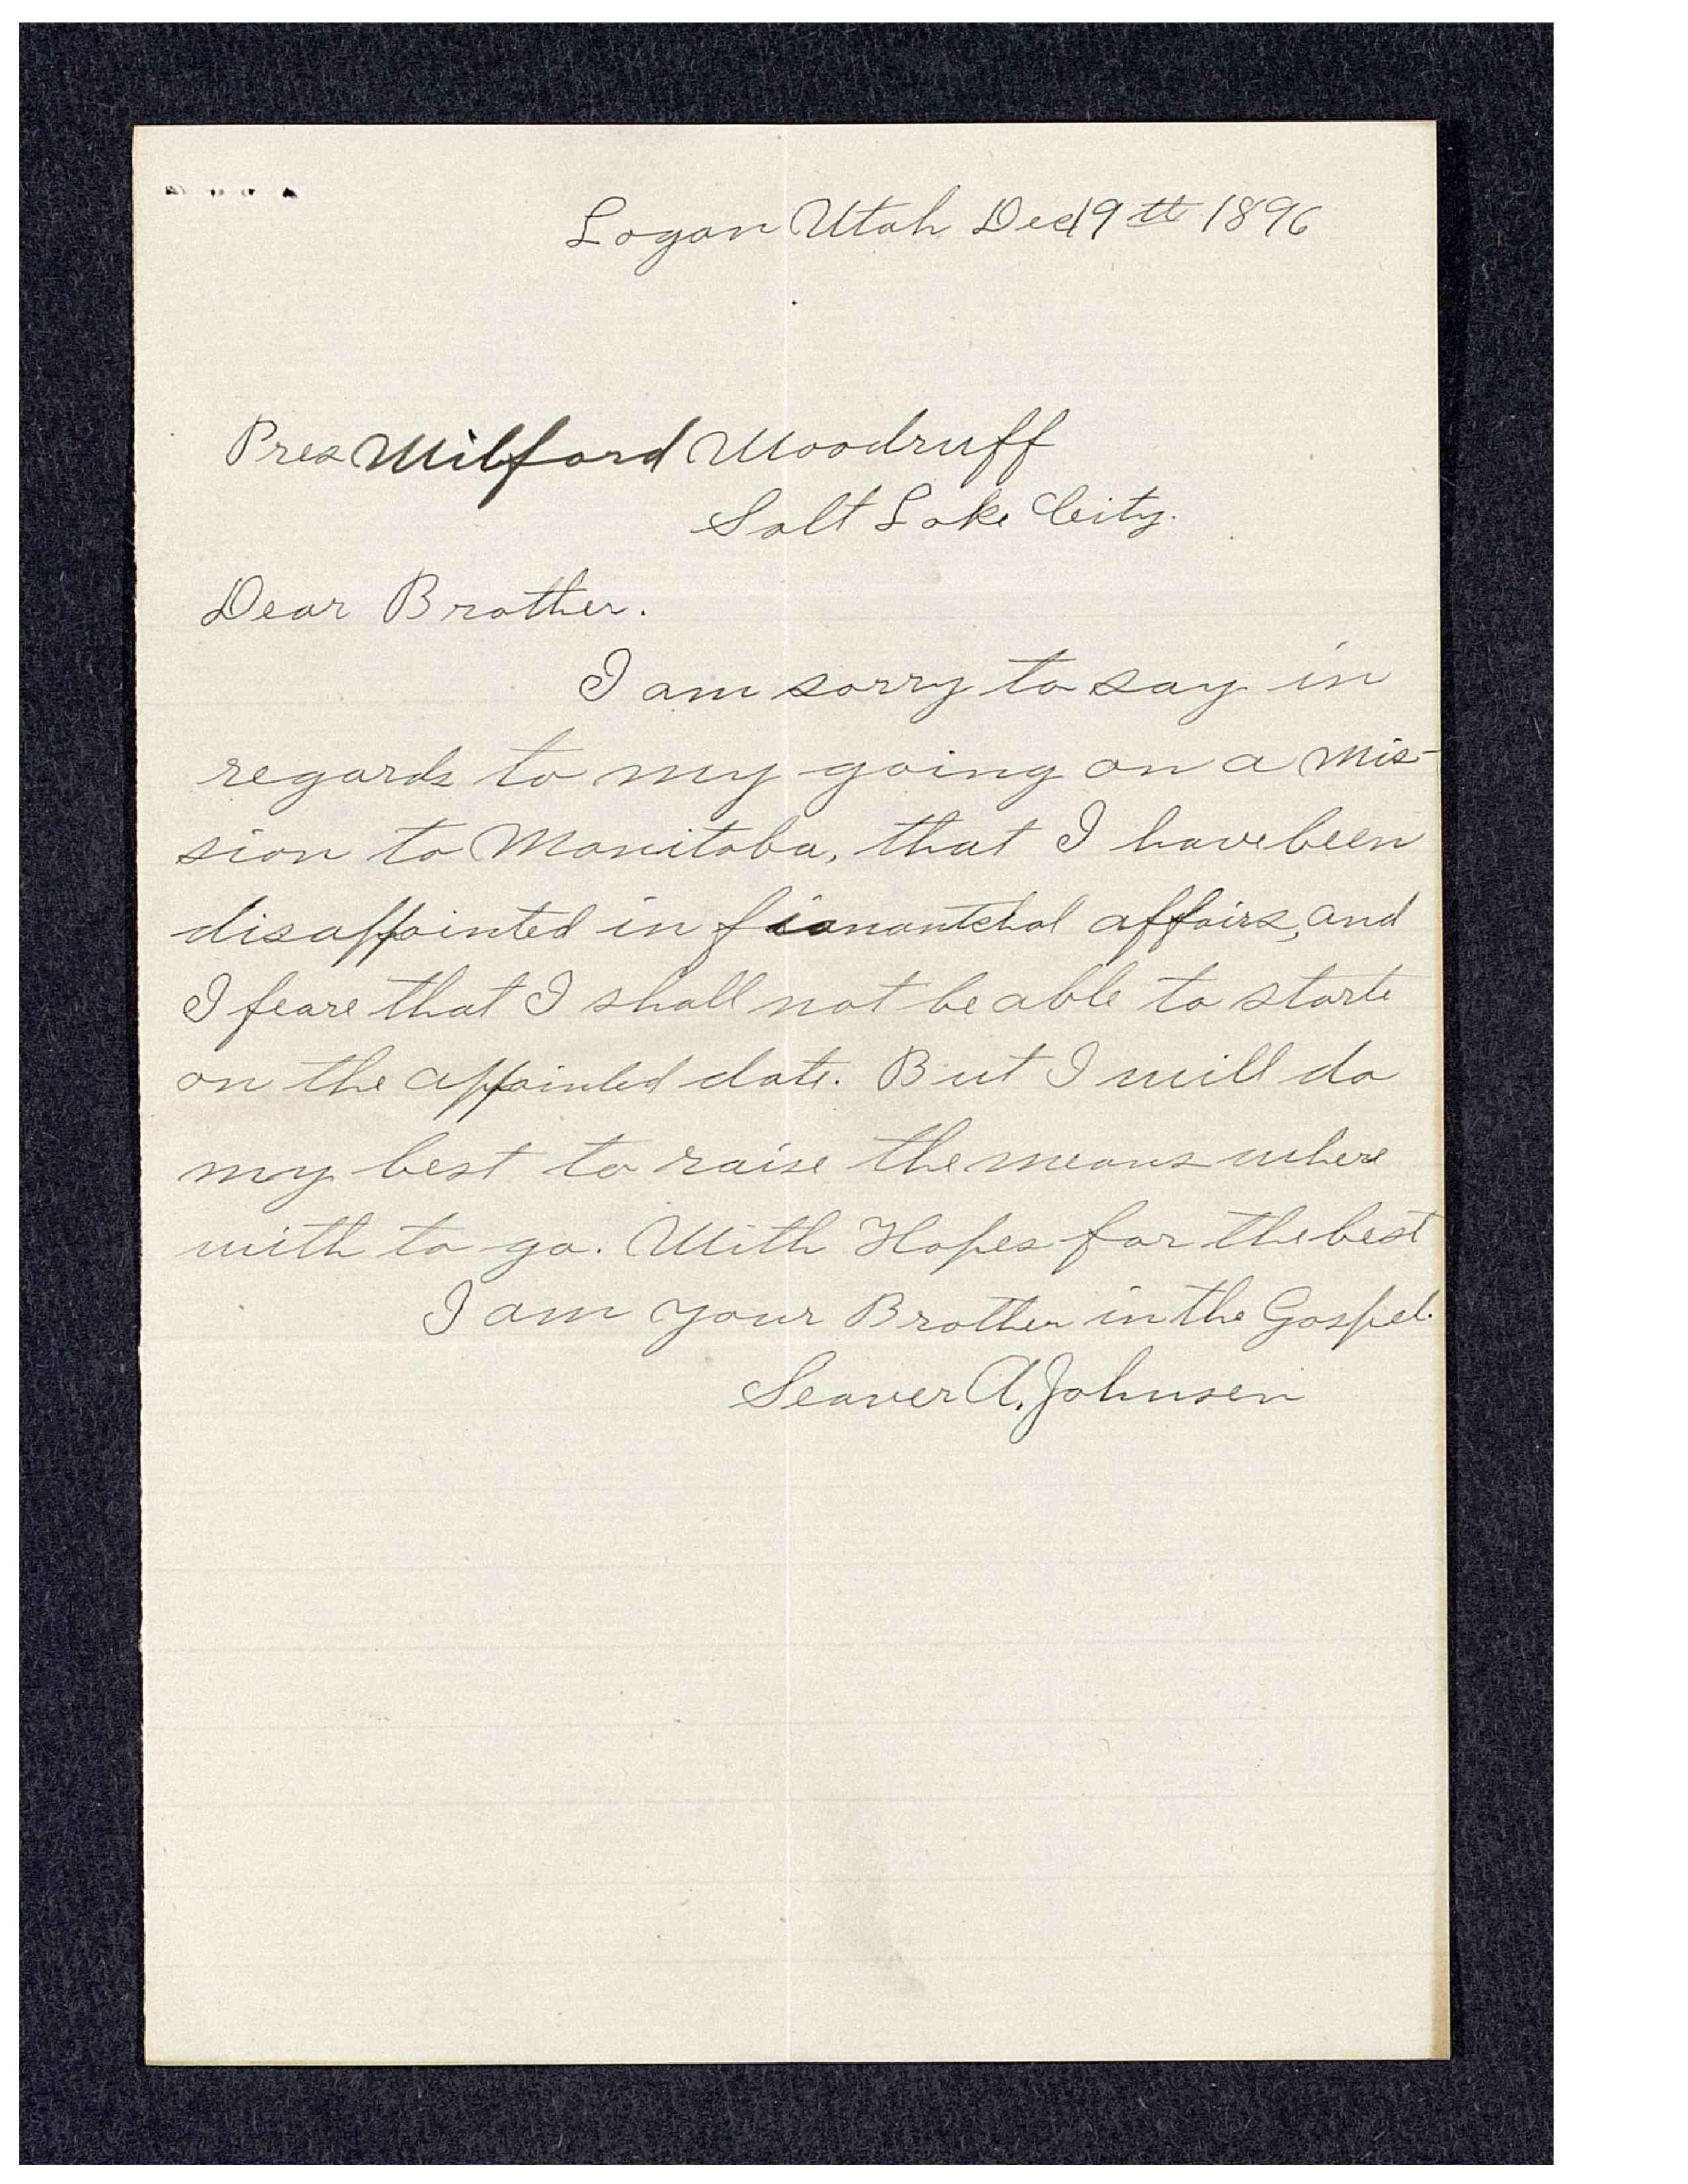 Logan Utah Dec 19th 1896
Pres Wilford Woodruff
Salt Lake City.
Dear Brother.
I am sorry to say in
regards to my going on a Mis-
sion to Manitoba, that I have been
disappointed in fianantchal affairs, and
I feare that I shall not be able to starte
on the appointed date. But I will do
my best to raise the means where
with to go. With Hopes for the best
I am your Brother in the Gospel.
Seaver A. Johnsen